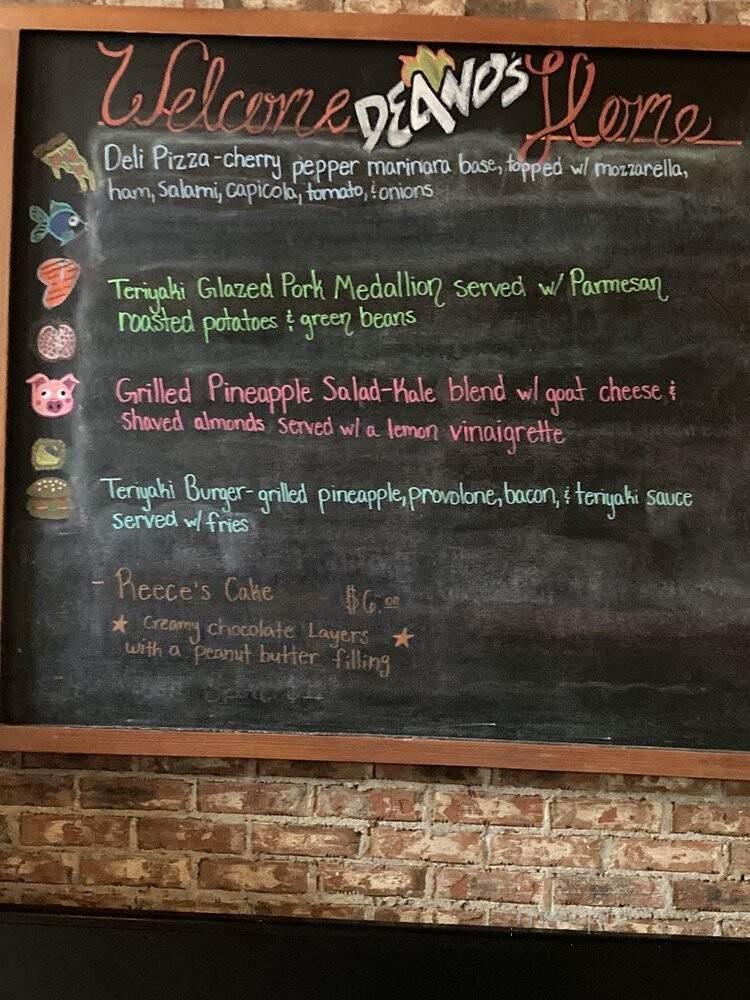 Welcome DEANO'S Home
Deli Pizza-cherry pepper marinara base, topped w/ mozzarella,
ham, salami, capicola, tomato, & onions
Teriyaki Glazed Pork Medallion served w/ Parmesan
roasted potatoes & green beans
Grilled Pineapple Salad-Kale blend w/ goat cheese &
Shaved almonds served w/ a lemon vinaigrette
Teriyaki Burger-grilled pineapple, provolone, bacon, & teriyaki sauce
served w/ fries
- Reece's Cake $6.00
★ Creamy chocolate Layers ★
with a peanut butter filling